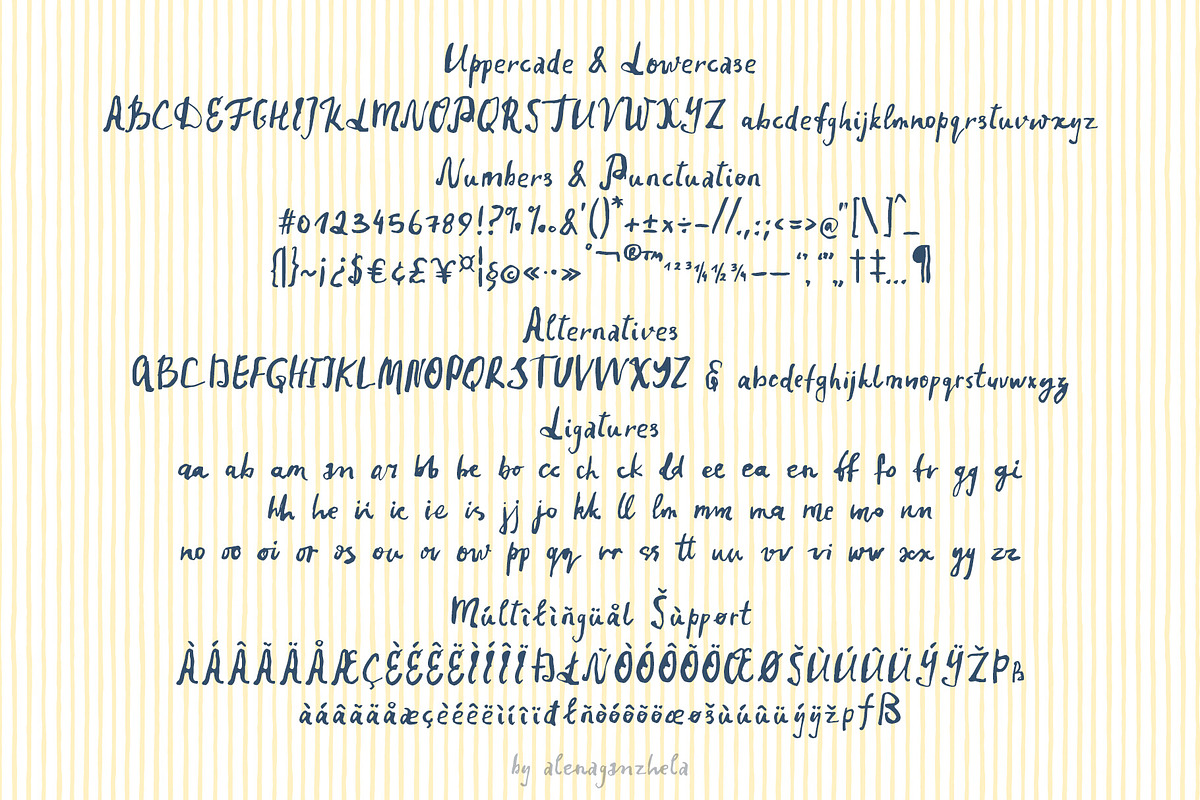 Uppercade & Lowercase
ABCDEFGHIJKLMNOPQRSTUVWXYZ abcdefghijklmnopqrstuvwxyz
Numbers & Punctuation
#0123456789!?%‰&'()*+±×÷−//.,:;<=>@"[\]^_
{|}~¡¿$€¢£¥¤¦§©«··»°¬®™¹²³¼½¾–—‘’‚“”„†‡…¶
Alternatives
ABCDEFGHIJKLMNOPQRSTUVWXYZ & abcdefghijklmnopqrstuvwxyzy
Ligatures
aa ab am an ar bb be bo cc ch ck dd ee ea en ff fo fr gg gi
hh he ii ic ie is jj jo kk ll lm mm ma me mo nn
no oo oi or os ou ov ow pp qq rr ss tt uu vv vi ww xx yy zz
Múltîłìñgüål Šùppørt
ÀÁÂÃÄÅÆÇÈÉÊËÌÍÎÏĐŁÑÒÓÔÕÖŒØŠÙÚÛÜÝŸŽÞß
àáâãäåæçèéêëìíîïđłñòóôõöœøšùúûüýÿžþƒß
by alenaganzhela